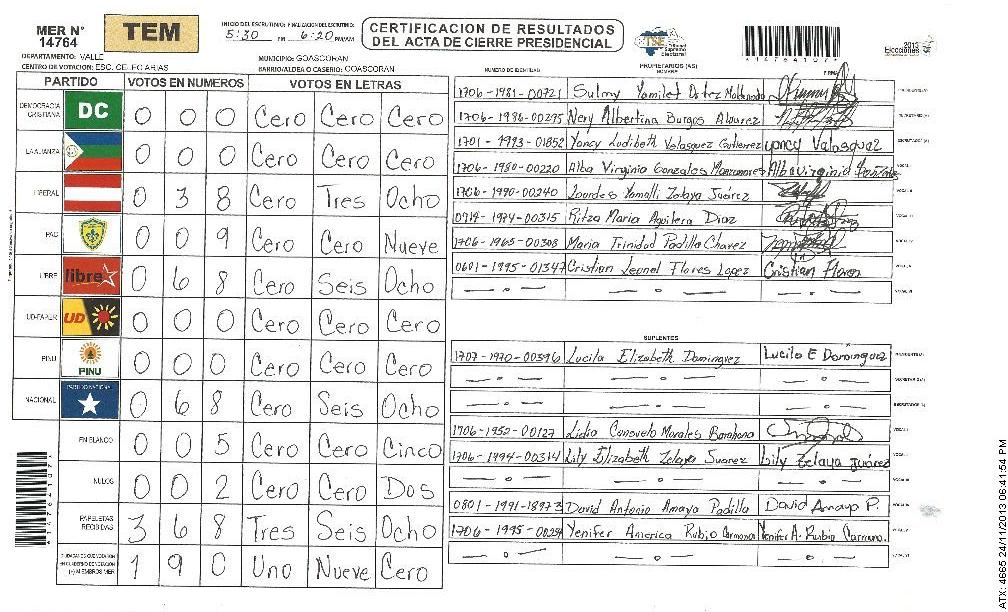 MER N° 14764
TEM
INICIO DEL ESCRUTINIO: FINALIZACION DEL ESCRUTINIO:
5:30 PM 6:20 PM/AM
CERTIFICACION DE RESULTADOS
DEL ACTA DE CIERRE PRESIDENCIAL
TSE Tribunal Supremo Electoral
2013 Elecciones
DEPARTAMENTO: VALLE
MUNICIPIO: GOASCORAN
CENTRO DE VOTACION: ESC. CELEO ARIAS
BARRIO/ALDEA O CASERIO: GOASCORAN
PARTIDO VOTOS EN NUMEROS VOTOS EN LETRAS
DEMOCRACIA CRISTIANA DC 0 0 0 Cero Cero Cero
LA ALIANZA 0 0 0 Cero Cero Cero
LIBERAL 0 3 8 Cero Tres Ocho
PAC 0 0 9 Cero Cero Nueve
LIBRE libre 0 6 8 Cero Seis Ocho
UD-FAPER UD 0 0 0 Cero Cero Cero
PINU PINU 0 0 0 Cero Cero Cero
NACIONAL PARTIDO NACIONAL 0 6 8 Cero Seis Ocho
EN BLANCO 0 0 5 Cero Cero Cinco
NULOS 0 0 2 Cero Cero Dos
PAPELETAS RECIBIDAS 3 6 8 Tres Seis Ocho
CIUDADANOS QUE VOTARON EN CUADERNO DE VOTACION (+) MIEMBROS MER 1 9 0 Uno Nueve Cero
NUMERO DE IDENTIDAD PROPIETARIOS (AS) NOMBRE FIRMA
1706-1981-00721 Sulmy Yamilet Ortez Maldonado
1706-1986-00295 Nery Albertina Burgos Alvarez
1701-1993-01852 Yancy Ludibeth Velasquez Gutierrez yancy Velasquez
1706-1980-00220 Alba Virginia Gonzales Manzanares Alba virginia Gonzales
1706-1990-00240 Lourdes Yamalli Zelaya Juárez
0719-1974-00315 Ritza Maria Aguilera Diaz
1706-1965-00308 Maria Trinidad Padilla Chavez
0601-1995-01347 Cristian Leonel Flores Lopez Cristian Flores
SUPLENTES
1707-1970-00396 Lucila Elizabeth Dominguez Lucila E Dominguez
1706-1952-00127 Lidia Consuelo Morales Barahona
1706-1994-00314 Lily Elizabeth Zelaya Suarez Lily Zelaya Juárez
0801-1991-18973 David Antonio Amaya Padilla David Amaya P.
1706-1995-00254 Yenifer America Rubio Carmona Yenifer A. Rubio Carmona.
ATX: 4665 24/11/2013 06:41:54 PM